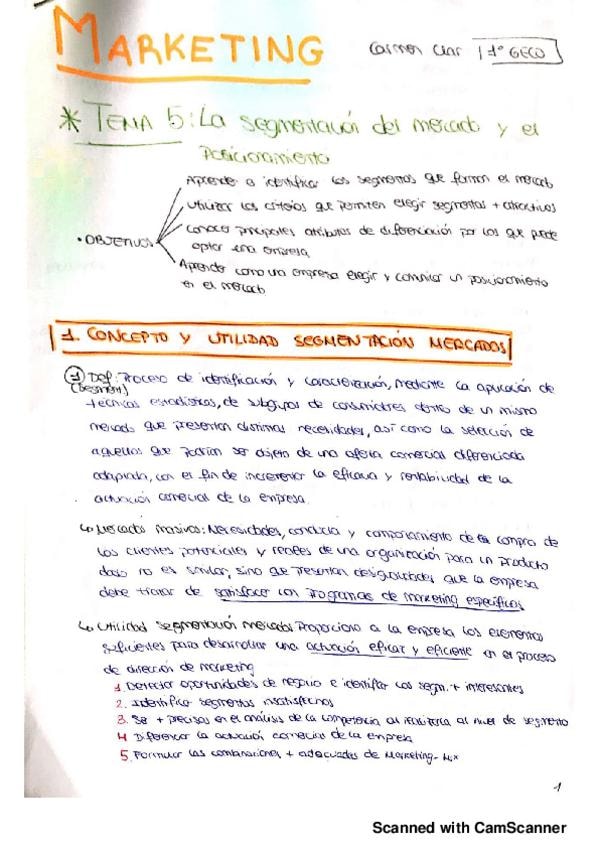 MARKETING
Carmen Clar 1º GECO
* TEMA 5: La segmentación del mercado y el
Posicionamiento
Aprender a identificar los segmentos que forman el mercado
Utilizar los criterios que permiten elegir segmentos + atractivos
• OBJETIVOS
Conocer principales atributos de diferenciación por los que puede
optar una empresa
Aprender como una empresa elegir y comunicar un posicionamiento
en el mercado
1. CONCEPTO Y UTILIDAD SEGMENTACIÓN MERCADOS
1 Def: Proceso de identificación y caracterización, mediante la aplicación de
(Segment)
técnicas estadísticas, de subgrupos de consumidores dentro de un mismo
mercado que presentan distintas necesidades, así como la selección de
aquellos que podrían ser objeto de una oferta comercial diferenciada
adaptada, con el fin de incrementar la eficacia y rentabilidad de la
actuación comercial de la empresa.
↳ Mercados masivos: Necesidades, conducta y comportamiento de la compra de
los clientes potenciales y reales de una organización para un producto
dado no es similar, sino que presentan desigualdades que la empresa
debe tratar de satisfacer con programas de marketing específicos
↳ Utilidad segmentación mercados Proporciona a la empresa los elementos
suficientes para desarrollar una actuación eficaz y eficiente en el proceso
de dirección de marketing
1. Detectar oportunidades de negocio e identificar los segm. + interesantes
2. Identifica segmentos insatisfechos
3. Se + precisos en el análisis de la competencia al realizarla al nivel de segmento
4 Diferenciar la actuación comercial de la empresa
5. Formular las combinaciones + adecuadas de Marketing-Mix
1
Scanned with CamScanner